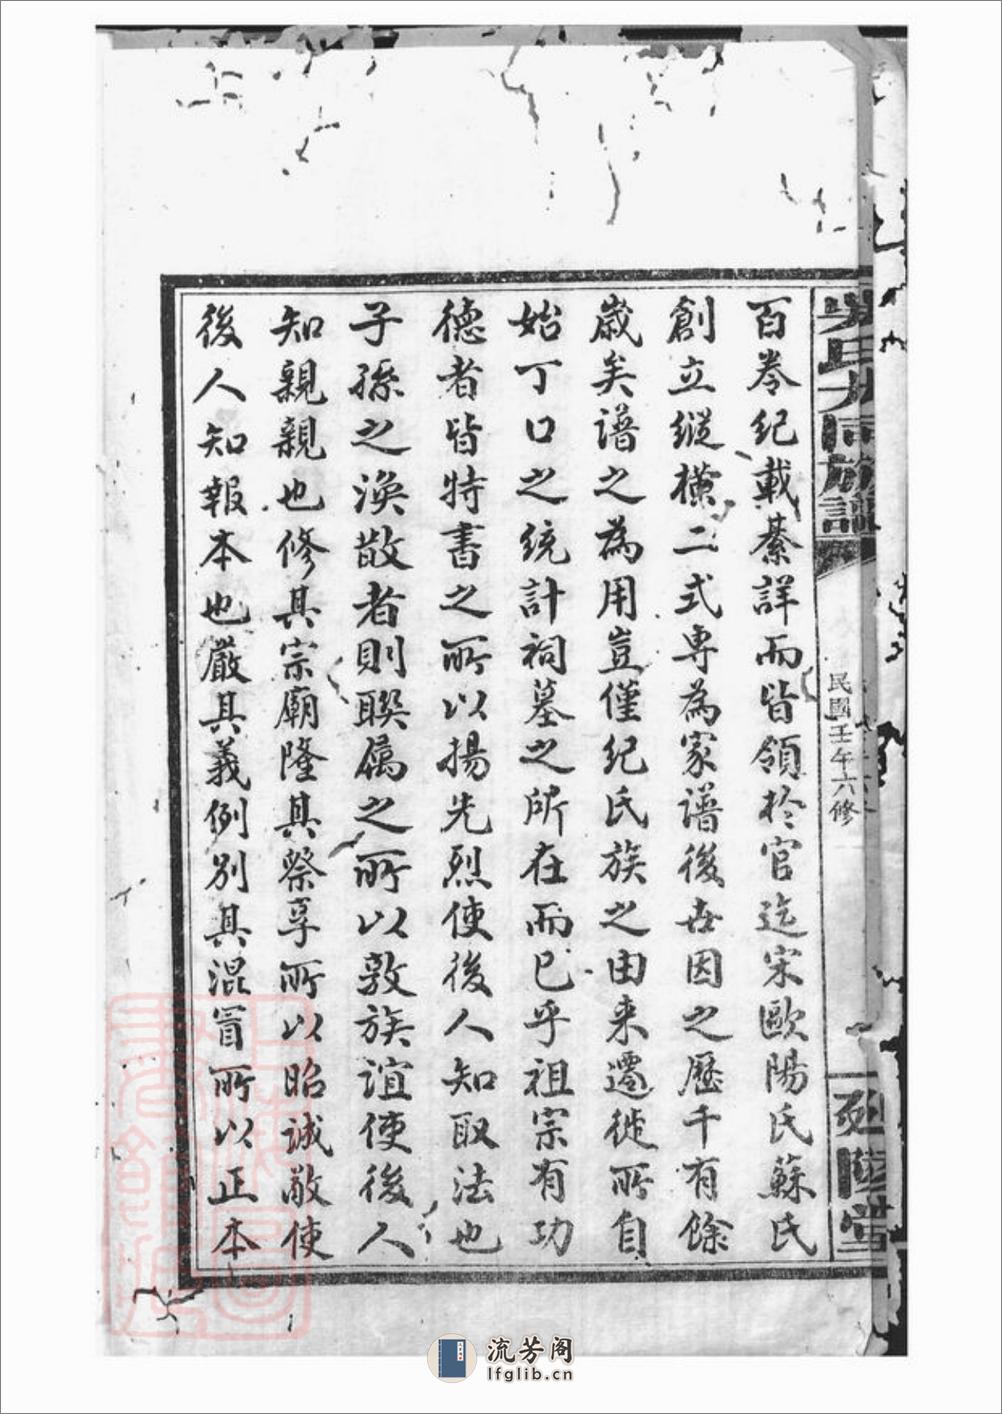 氏九修族譜
民國壬午六修
堂
百卷紀載綦詳而皆領於官迄宋歐陽氏蘇氏
創立縱橫二式專為家譜後世因之歷千有餘
歲矣譜之為用豈僅紀氏族之由来遷徙所自
始丁口之統計祠墓之所在而已乎祖宗有功
德者皆特書之所以揚先烈使後人知取法也
子孫之渙散者則聯属之所以敦族誼使後人
知親親也修其宗廟隆其祭享所以昭誠敬使
後人知報本也嚴其義例別其混冒所以正本
流芳阁
lfglib.cn